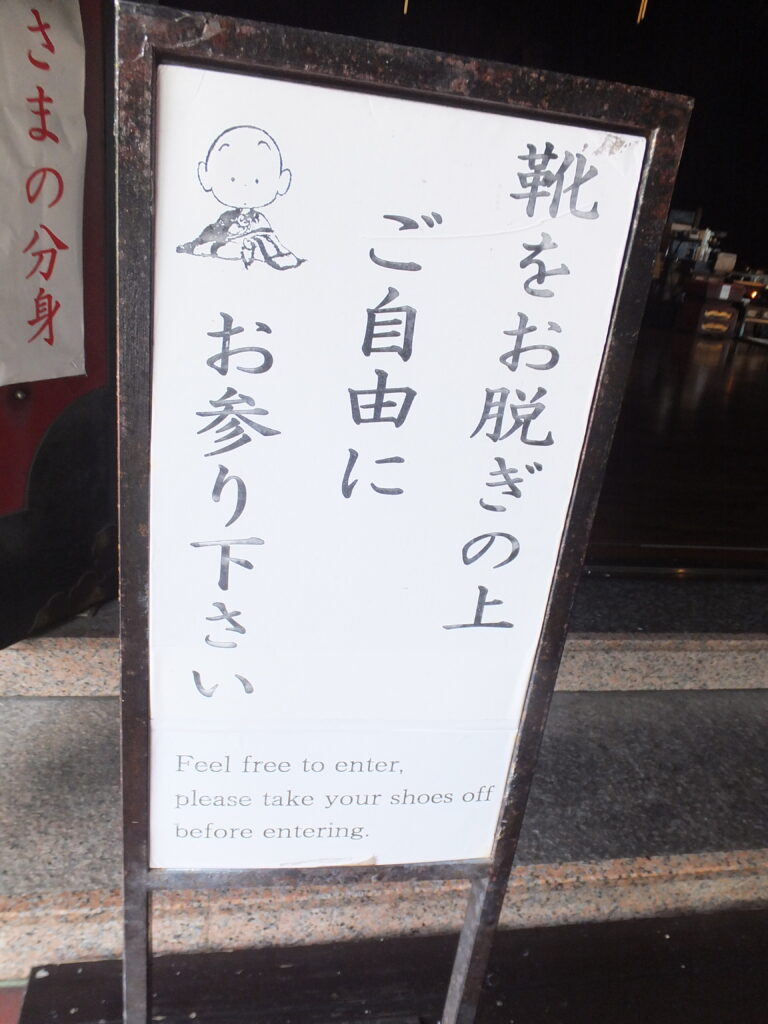 靴をお脱ぎの上
ご自由に
お参り下さい
Feel free to enter,
please take your shoes off
before entering.
さまの分身